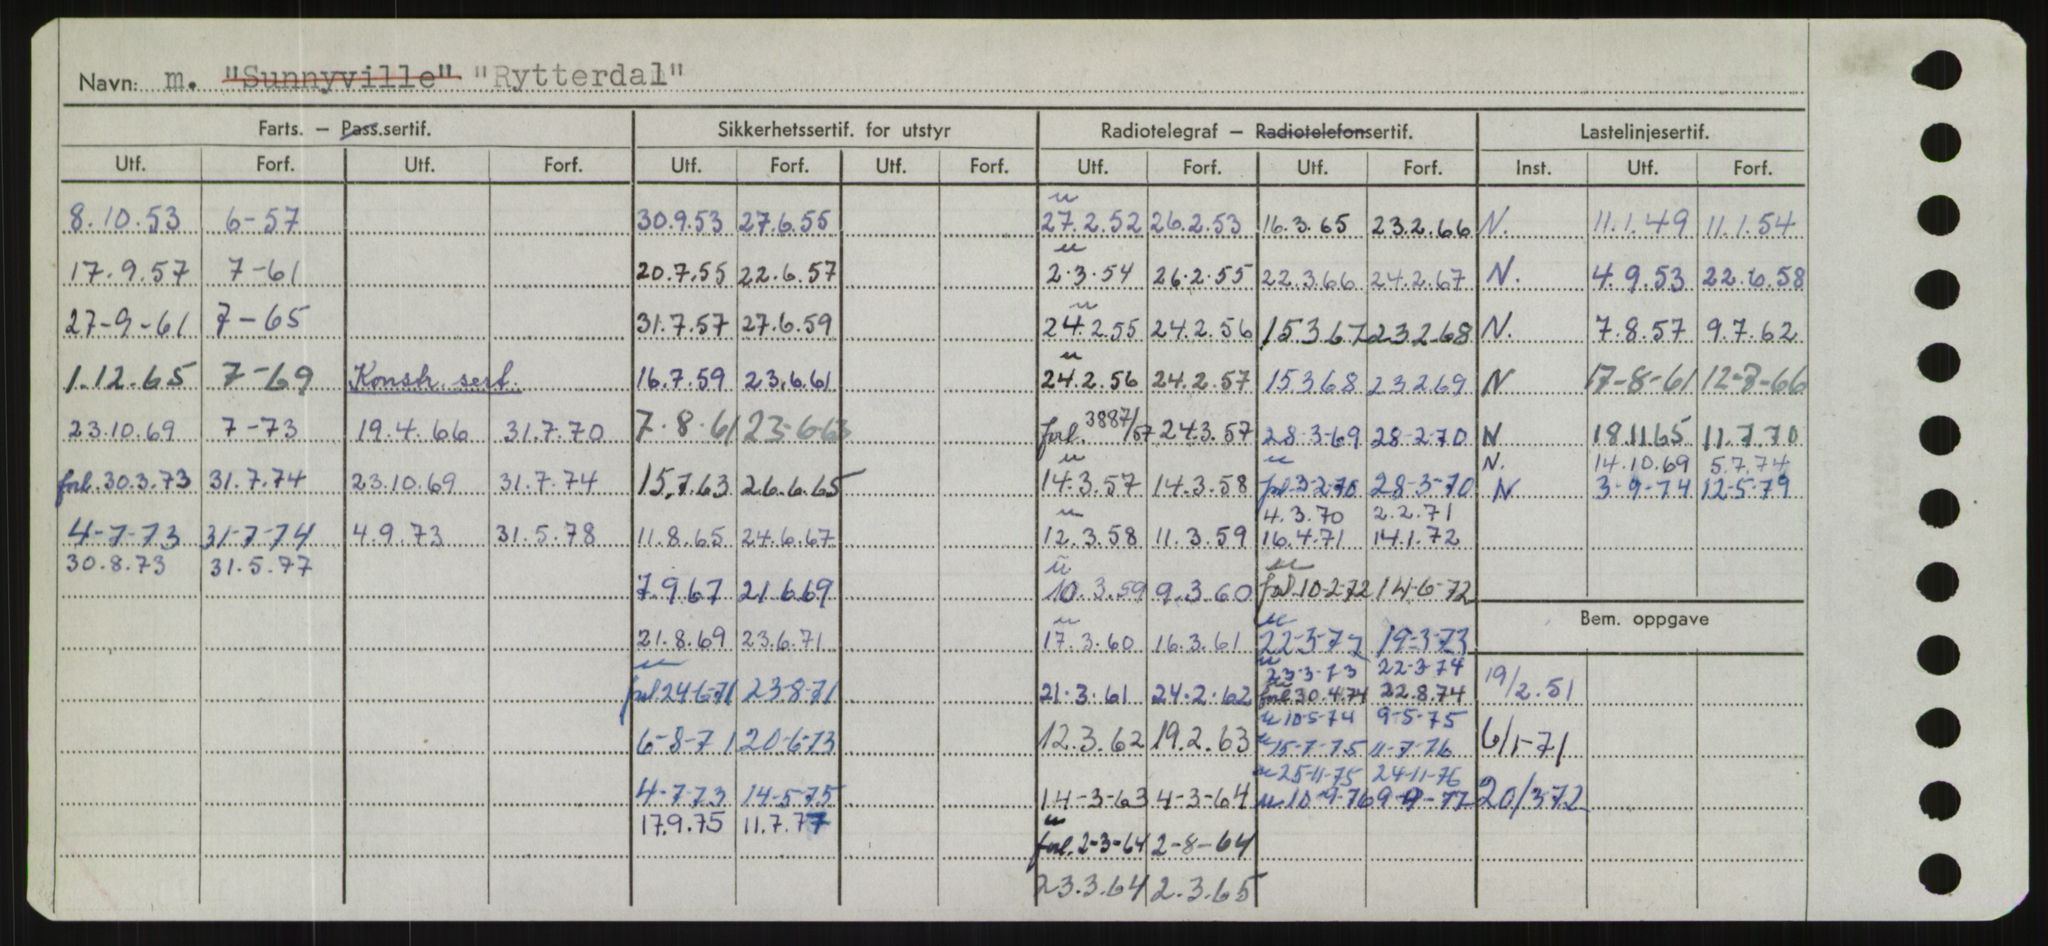 Navn: m. "Sunnyville" "Rytterdal"
Farts. – Pass.sertif. Sikkerhetssertif. for utstyr Radiotelegraf – Radiotelefonsertif. Lastelinjesertif.
Utf. Forf. Utf. Forf. Utf. Forf. Utf. Forf. Utf. Forf. Utf. Forf. Inst. Utf. Forf.
8.10.53 6-57 30.9.53 27.6.55 u 27.2.52 26.2.53 16.3.65 23.2.66 N. 11.1.49 11.1.54
17.9.57 7-61 20.7.55 22.6.57 u 2.3.54 26.2.55 22.3.66 24.2.67 N. 4.9.53 22.6.58
27-9-61 7-65 31.7.57 27.6.59 u 24.2.55 24.2.56 15.3.67 23.2.68 N. 7.8.57 9.7.62
1.12.65 7-69 Konstr. sert. 16.7.59 23.6.61 u 24.2.56 24.2.57 15.3.68 23.2.69 N 17-8-61 12-7-66
23.10.69 7-73 19.4.66 31.7.70 7.8.61 23-6-63 forl. 3887/57 24.3.57 28-3-69 28-2-70 N 18.11.65 11.7.70
N. 14.10.69 5.7.74
forl. 30.3.73 31.7.74 23.10.69 31.7.74 15.7.63 26.6.65 u 14.3.57 14.3.58 u forl. 3-2-70 28-3-70 N 3-9-74 12-5-79
4.3.70 2.2.71
4-7-73 31-7-74 4.9.73 31.5.78 11.8.65 24.6.67 u 12.3.58 11.3.59 16.4.71 14.1.72
30.8.73 31.5.77
7.9.67 21.6.69 u 10.3.59 9.3.60 u forl. 10-2-72 14-6-72
Bem. oppgave
21.8.69 23.6.71 u 17.3.60 16.3.61 u 22-3-72 19-3-73
u 23-3-73 22-3-74
u forl. 24-6-71 23-8-71 21.3.61 24.2.62 u forl. 30.4.74 22.8.74 19/2.51
u 10-5-74 9-5-75
6-8-71 20-6-73 12.3.62 19.2.63 u 15-7-75 11-7-76 6/1-71
u 25-11-75 24-11-76
4-7-73 14-5-75 14-3-63 4-3-64 u 10-9-76 9-9-77 20/3 72
17.9.75 11.7.77
u forl. 2-3-64 2-8-64
23.3.64 2.3.65